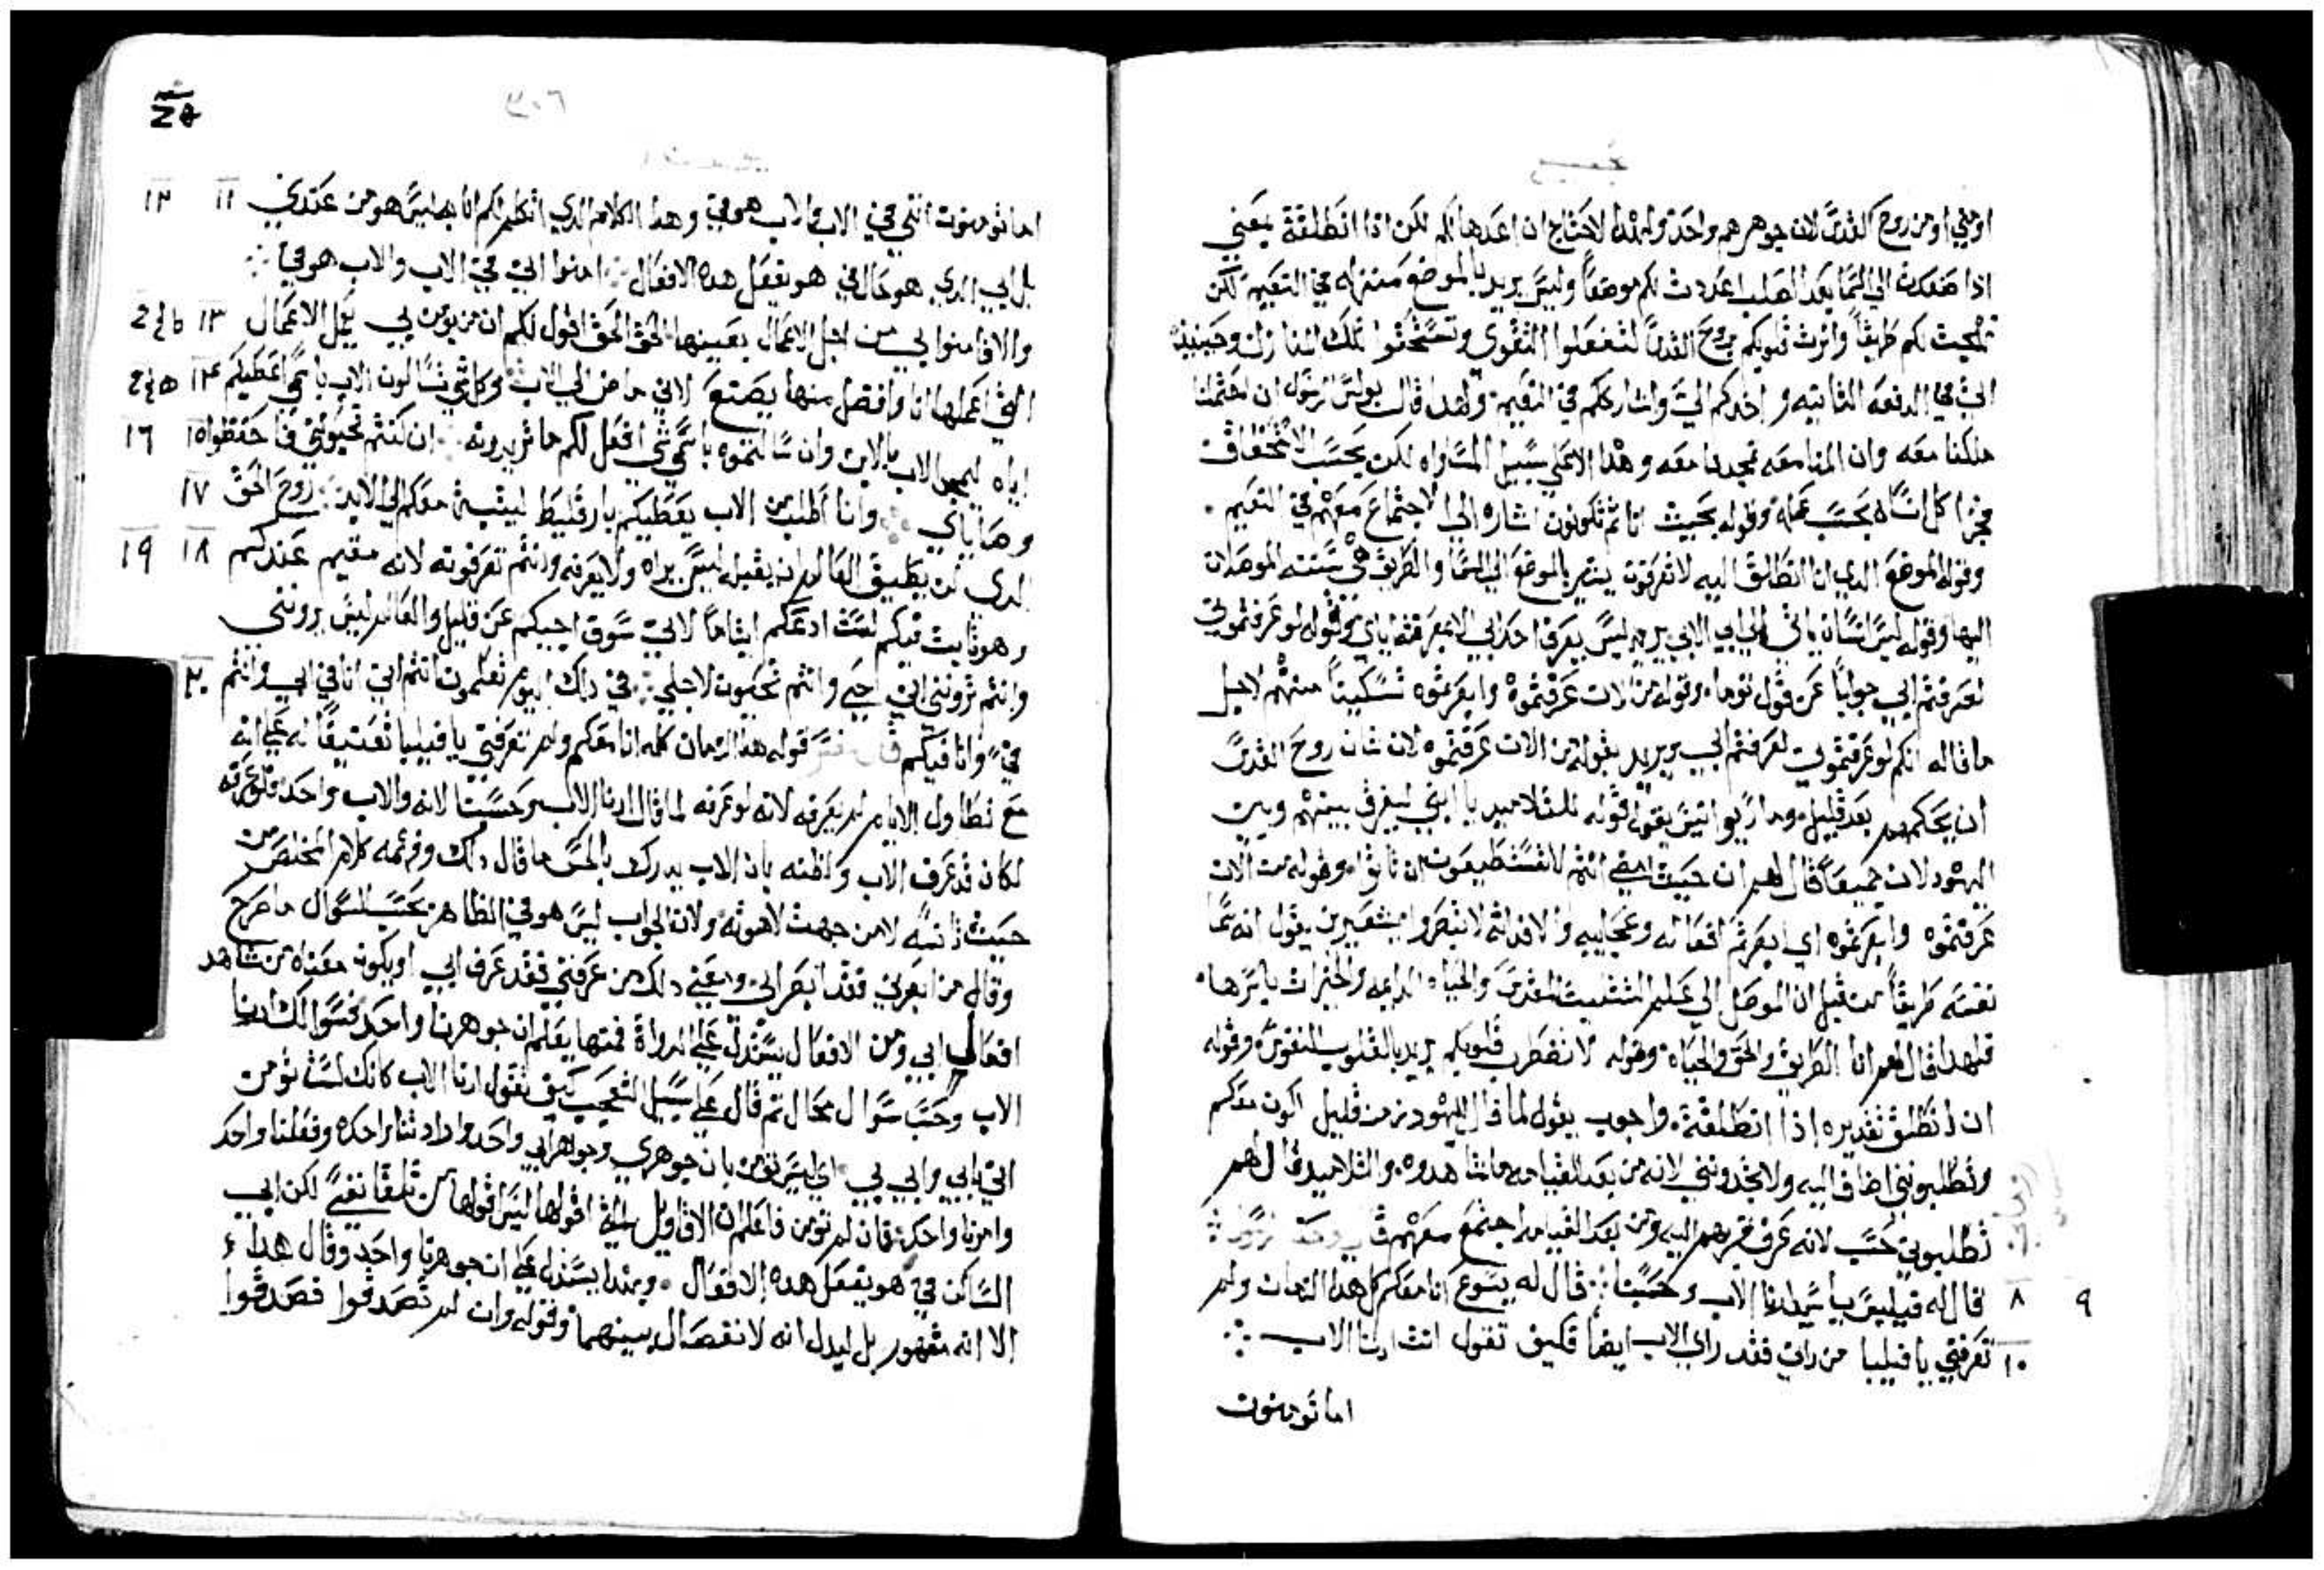 اومني اومن روح القدس لان جوهرهم واحد ولهذا لاحتاج ان اعدها لكم لكن اذا انطلقة يعني
اذا صعدت الي السما بعد الصلب اعددت لكم موضعاً وليس يريد بالموضع منزله في النعيم لكن
لكم طريقاً وانرت قلوبكم بروح القدس لتفعلوا التقوي وتستحقوا تلك المنازل وحينيذ
اتي في الدفعه الثانيه و اخدكم الي واشارككم في النعيم ولهدا قال بولس الرسول ان احتملنا
ملكنا معه وان المنا معه تمجدنا معه و هدا لاعلي سبيل المساواه لكن بحسب الاستحقاق
كل انسان بحسب عمله وقوله بحيث انا تم تكونون اشاره الي الاجتماع معهم في النعيم .
وقوله الموضع الدي انا انطالق اليه لا تعرفون يشير بالموضع الي السما والطريق هي سنته الموصلات
اليها وقوله ليس انسان ياتي الي ابي الا بي يريد ليس يعرف احد ابي الا بمعرفته اياي وقوله لو عرفتموني
لعرفتم ابي جواباً عن قول توما وقوله من الان عرفتموه وابصرتموه تسكيناً منهم لاجل
ما قاله انكم لو عرفتموني لعرفتم ابي ويريد بقوله من الان عرفتموه لان شان روح القدس
ان يحكمهم بعد قليل وماريوانيس يقول قوله للتلاميد يا ابني ليفرق بينهم وبين
اليهود لان جميعاً قال لهم ان حيث امضي انتم لا تستطيعون ان تاتوا وقوله من الان
عرفتموه وابصرتموه اي ابصرتم افعاله وعجايبه والا فداته لا تبصروا يقول انه سما
نفسه طريقاً من قبل ان الموصل الي علم التثليت المقدس والحياه الدايمه والخيرات باسرها
فلهدا قال لهم انا الطريق والحق والحياه وقوله لا تضطرب قلوبكم يريد بالقلوب النفوس وقوله
ان انطلق تقديره اذا انطلقة واجوب يقول لما قال لليهود من قليل اكون معكم
وتطلبوني اضاف اليه ولا تجدونني لانه من بعد القيامه ما شاهدوه والتلاميد قال لهم
تطلبوني حسب لانه عرف قربهم اليه ومن بعد القيامه اجتمع معهم
٨ ٩ قال له فيليبس يا سيد ارنا الاب وحسبنا قال له يسوع انا معكم كل هدا الزمان ولم
١٠ تعرفني يا فيلبا من راني فقد راي الاب ايضاً فكيف تقول انت ارنا الاب
اما تومنون
٣٠٦
اما تومنون انني في الاب والاب هو في وهدا الكلام الدي اتكلم لكم انا به ليس هو من عندي ١١ ١٢
بل ابي الدي هو حال في هو يفعل هده الافعال امنوا اني في الاب والاب هو في
والا فامنوا بي من اجل الاعمال بعينها الحق الحق اقول لكم ان من يومن بي يعمل الاعمال ١٣
التي اعملها انا وافضل منها يصنع لاني ماض الي الاب وكل شي تسالون الاب باسمي اعطيكم ١٤
اياه ليمجد الاب بالابن وان سالتموه باسمي شي افعل لكم ما تريدونه ان كنتم تحبوني فاحفظوا ١٥ ١٦
وصاياي وانا اطلب من الاب يعطيكم بارقليط ليتبت معكم الي الابد روح الحق ١٧
الدي لن يطيق العالم ان يقبله ليس يراه ولا يعرفه وانتم تعرفونه لانه مقيم عندكم ١٨ ١٩
وهو تابت فيكم لست ادعكم ايتاماً لاني سوف اجيكم عن قليل والعالم ليس يرونني
وانتم ترونني اني حي وانتم تحيون لاجلي في دلك اليوم تعلمون انتم اني انا في ابي وانتم ٢٠
في وانا فيكم قوله هدا الزمان كله انا معكم ولم تعرفني يا فيلبا تعنيفاً له علي انه
مع تطاول الايام لم يعرفه لانه لو عرفه لما قال ارنا الاب وحسبنا لانه والاب واحد فلو عرفه
لكان قد عرف الاب ولظنه بان الاب يدرك بالحس ما قال دلك وفهمه كلام المخلص من
حيث ناسه لا من جهت لاهوته ولان الجواب ليس هو في الظاهر بحسب السوال ما صرح
وقال من ابصرني فقد ابصر ابي ومعني دلك من عرفني فقد عرف ابي او يكون معناه من شاهد
افعالي ابي ومن الافعال يستدل علي الدواة فمنها يعلم ان جوهرنا واحد فسوالك ارنا
الاب وحسب سوال محال تم قال علي سبيل التعجب كيف تقول ارنا الاب كانك لست تومن
اني بابي وابي بي اي ليس تومن بان جوهري وجوهر ابي واحد وارادتنا واحده وفعلنا واحد
وامرنا واحد فان لم تومن فاعلم ان الاقاويل التي اقولها ليس اقولها من تلقا نفسي لكن ابي
الساكن في هو يفعل هده الافعال وبهدا يستدل علي ان جوهرنا واحد وقال هدا
الا انه مقهور بل ليدل انه لا انفصال بينهما وقوله وان لم تصدقوا فصدقوا